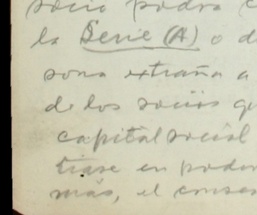 socio podra
la Serie (A) o d
sona extraña a
de los socios qu
capital social
tiase en poder
más, el conse